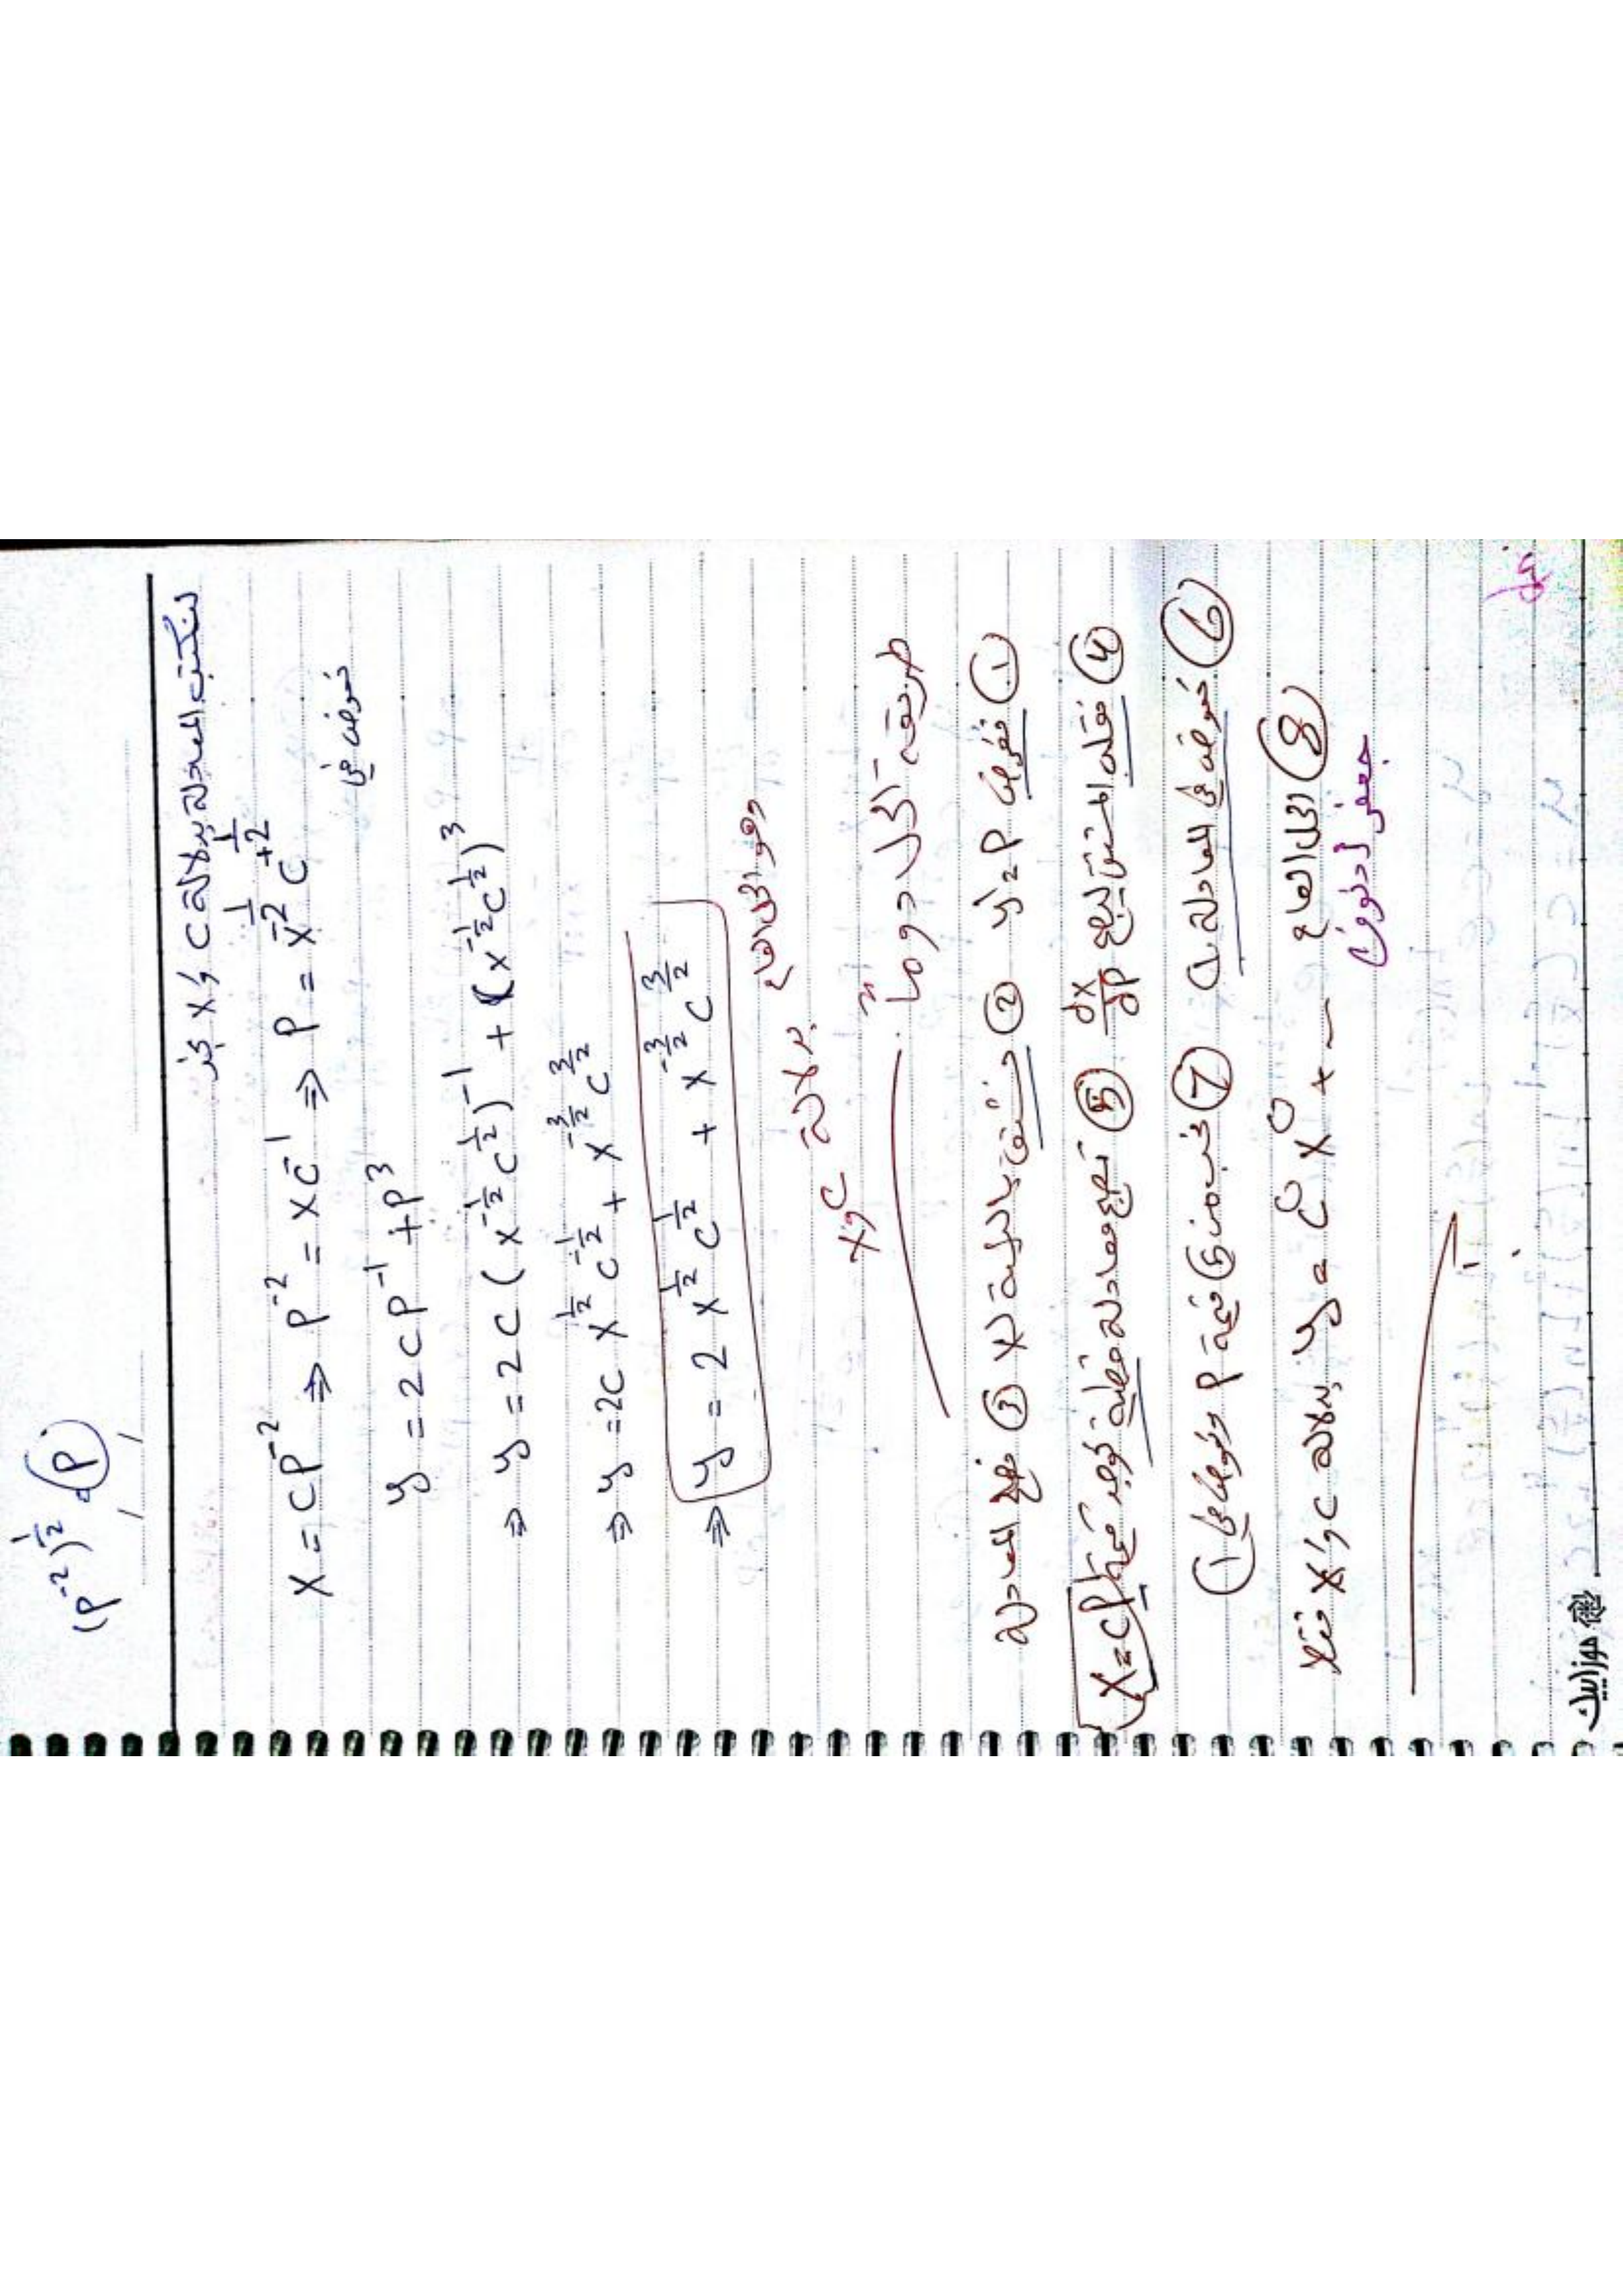 (P⁻²)^½ = P
لنكتب المعادلة بدلالة C و X نجد
X = CP⁻² ⇒ P⁻² = XC⁻¹ ⇒ P = X^-½ C^+½
نعوض في
y = 2CP⁻¹ + P³
⇒ y = 2C (X^-½ C^½)⁻¹ + (X^-½ C^½)³
⇒ y = 2C X^½ C^-½ + X^-3/2 C^3/2
⇒ y = 2 X^½ C^½ + X^-3/2 C^3/2
وهو الحل العام
بدلالة
C و X
طريقة الحل
① نفرض y' = P ② نشتق بالنسبة لـ X ③ المعادلة
④ نقلب المشتق ليصبح dx/dP ⑤ تصبح معادلة خطية نوجد قيمة X = CP
⑥ نعوض في المعادلة ⑦ نجد من ⑤ قيمة P ونعوض في ①
⑧ الحل العام y = C X + بدلالة C و X فقط